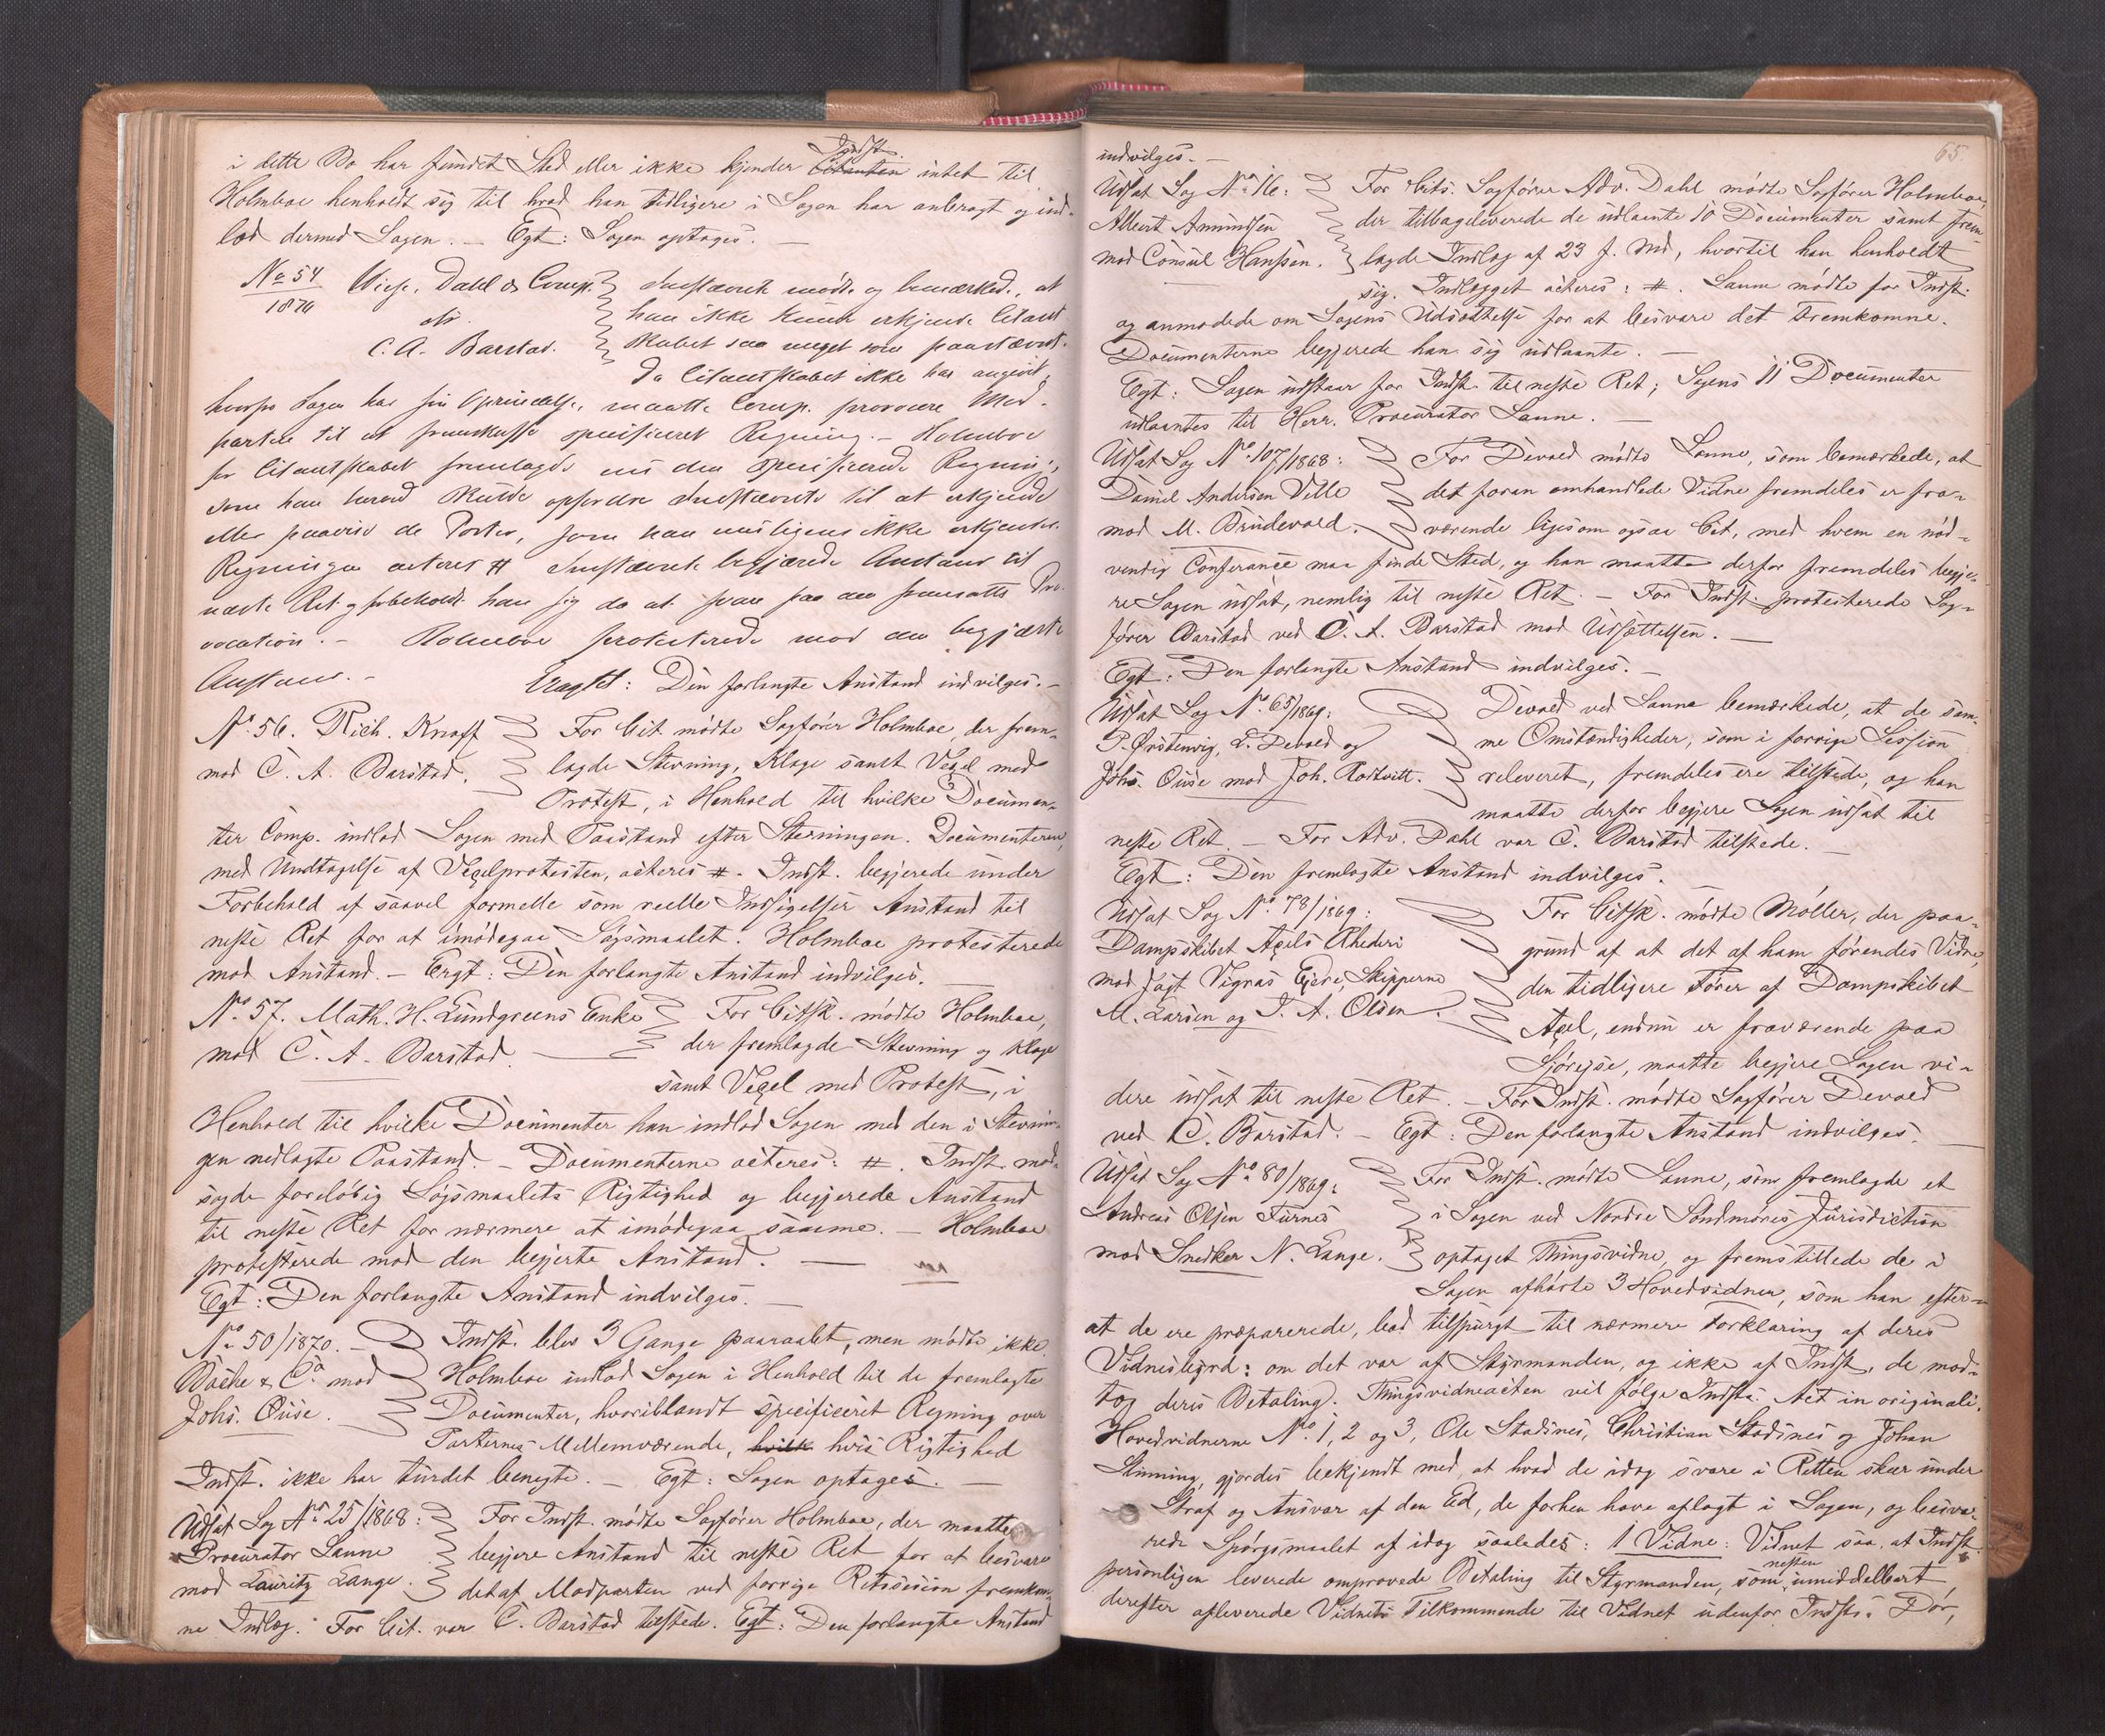 i dette Bo har fundet Sted eller ikke kjender Indst. Citanten intet til
Holmboe henholdt sig til hvad han tidligere i Sagen har anbragt og ind-
lod dermed Sagen. – Egt: Sagen optages. –
No 54 Wiese, Dahl & Comp. Indstævnte mødte og bemærkede, at
1870 ctr. han ikke kunde erkjende Citant
C. A. Barstad. skabet saa meget som paastævnt.
Da Citantskabet ikke har angivet,
hvorfra Sagen har sin Oprindelse, maatte Comp. provocere Mod-
parten til at fremskaffe specificeret Regning. – Holmboe
for Citantskabet fremlagde nu den specificerede Regning,
som han herved skulde opfordre Indstævnte til at erkjende
eller paavise de Poster, som han muligens ikke erkjender.
Regningen acteres # Indstævnte begjærede Anstand til
næste Ret og forbeholdt han sig da at svare paa den fremsatte Pro-
vocation. – Holmboe protesterede mod den begjærte
Anstand. – Eragtet: Den forlangte Anstand indvilges. –
No 56. Rich. Knoff For Cit mødte Sagfører Holmboe, der frem-
mod C. A. Barstad. lagde Stevning, Klage samt Vexel med
Protest, i Henhold til hvilke Documen-
ter Comp. indlod Sagen med Paastand efter Stevningen. Documenterne,
med Undtagelse af Vexelprotesten, acteres #. Indst. begjerede under
Forbehold af saavel formelle som reelle Indsigelser Anstand til
neste Ret for at imødegaa Søgsmaalet. Holmboe protesterede
mod Anstand. – Eragt: Den forlangte Anstand indvilges. –
No 57. Math. H. Lundgreens Enke For Citsk. mødte Holmboe,
mod C. A. Barstad. der fremlagde Stevning og Klage
samt Vexel med Protest, i
Henhold til hvilke Documenter han indlod Sagen med den i Stevnin-
gen nedlagte Paastand. – Documenterne acteres: #. Indst. mod-
sagde foreløbig Søgsmaalets Rigtighed og begjerede Anstand
til neste Ret for nærmere at imødegaa samme. – Holmboe
protesterede mod den begjerte Anstand. –
Egt: Den forlangte Anstand indvilges. –
No 50/1870. – Indst. blev 3 Gange paaraabt, men mødte ikke.
& Co mod Holmboe indlod Sagen i Henhold til de fremlagte
Johs. Ouse. Documenter, hvoriblandt specificeret Regning over
Parternes Mellemværende, hvilk hvis Rigtighed
Indst. ikke har turdet benegte. – Egt: Sagen optages. –
Udsat Sag No 25/1868: For Indst. mødte Sagfører Holmboe, der maatte
Procurator Sanne begjere Anstand til neste Ret for at besvare
mod Lauritz Lange. det af Modparten ved forrige Retssession fremkom-
ne Indlæg. For Cit. var C. Barstad tilstede. Egt: Den forlangte Anstand
65.
indvilges. –
Udsat Sag No 16: For Cits. Sagfører Adv. Dahl mødte Sagfører Holmboe
Albert Amundsen der tilbageleverede de udlaante 10 Documenter samt frem-
mod Consul Hanssen. lagde Indlæg af 23 f. Md, hvortil han henholdt
sig. Indlægget acteres: #. Sanne mødte for Indst.
og anmodede om Sagens Udsættelse for at besvare det Fremkomne.
Documenterne begjerede han sig udlaante. –
Egt: Sagen udstaar for Indst. til neste Ret; Sagens 11 Documenter
udlaantes til Herr. Procurator Sanne. –
Udsat Sag No 107/1868: For Devold mødte Sanne, som bemærkede, at
Daniel Andersen Velle det foran omhandlede Vidne fremdeles er fra-
mod M. Brudevold. værende ligesom ogsaa Cit, med hvem en nød-
vendig Conferance maa finde Sted, og han maatte derfor fremdeles begje-
re Sagen udsat, nemlig til neste Ret. – For Indst. protesterede Sag-
fører Barstad ved C. A. Barstad mod Udsættelsen. –
Egt: Den forlangte Anstand indvilges. –
Udsat Sag No 65/1869: Devold ved Sanne bemærkede, at de sam-
P. Ørstenvig, L. Devold og me Omstændigheder, som i forrige Session
Johs. Ouse mod Joh. releveret, fremdeles ere tilstede, og han
maatte derfor begjere Sagen udsat til
neste Ret. – For Adv. Dahl var C. Barstad tilstede. –
Egt: Den fremlagte Anstand indvilges. –
Udsat Sag No 78/1869: For Citsk. mødte Møller, der paa-
Dampskibet Axels Rhederi grund af at det af ham førendes Vidne,
mod Jagt Vigras Eiere, Skipperne den tidligere Fører af Dampskibet
M. Larsen og T. A. Olsen. Axel, endnu er fraværende paa
Sjøreise, maatte begjere Sagen vi-
dere udsat til neste Ret. – For Indst. mødte Sagfører Devold
ved C. Barstad. – Egt: Den forlangte Anstand indvilges. –
Udsat Sag No 80/1869: For Indst. mødte Sanne, som fremlagde et
Andreas Olsen Furnes i Sagen ved Nordre Søndmøres Jurisdiction
mod Snedker N. Lange. optaget Thingsvidne, og fremstillede de i
Sagen afhørte 3 Hovedvidner, som han efter-
at de ere præparerede, bad tilspurgt til nærmere Forklaring af deres
Vidnesbyrd: om det var af Styrmanden, og ikke af Indst, de mod-
tog deres Betaling. Thingsvidneacten vil følge Indsts. Act in originali.
Hovedvidnerne No 1, 2 og 3, Ole Stadsnes, Christian Stadsnes og Johan
gjordes bekjendt med, at hvad de idag svare i Retten skeer under
Straf og Ansvar af den Ed, de forhen have aflagt i Sagen, og besva-
rede Spørgsmaalet af idag saaledes: 1 Vidne: Vidnet saa, at Indst.
personligen leverede omprovede Betaling til Styrmanden, som nesten umiddelbart
derefter afleverede Vidnets Tilkommende til Vidnet udenfor Indsts. Dør,